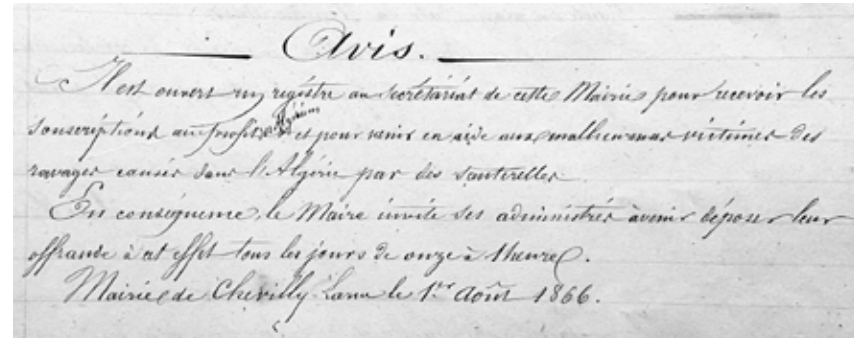 Avis.
Il est ouvert un registre au secrétariat de cette Mairie pour recevoir les
souscriptions au profit et pour venir en aide aux malheureuses victimes des
ravages causés dans l'Algérie par des sauterelles
En conséquence, le Maire invite ses administrés à venir déposer leur
offrande à cet effet tous les jours de onze à 1 heure.
Mairie de Chevilly le 1er Août 1866.